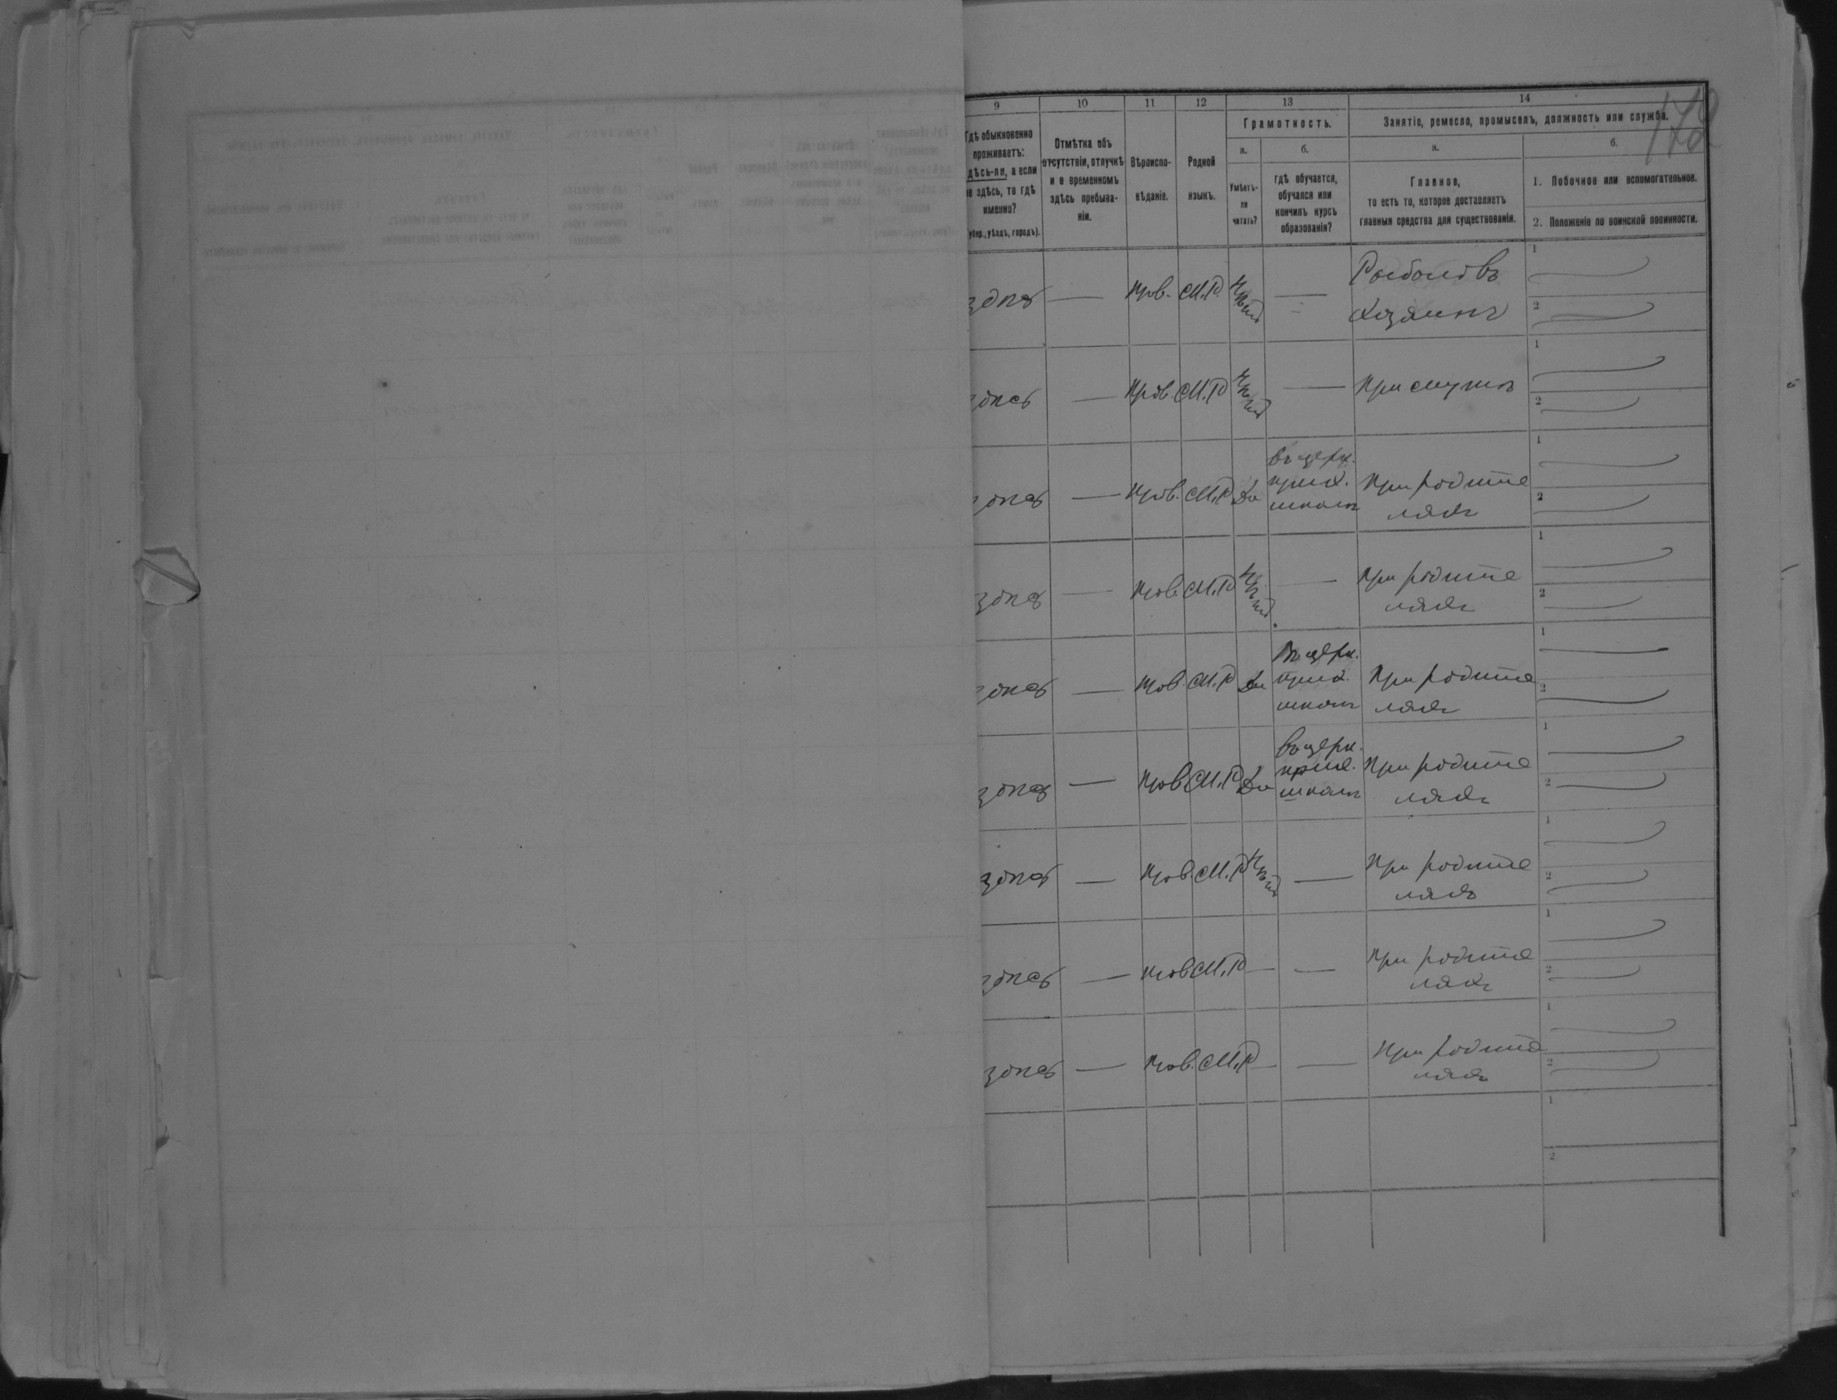 178
9 10 11 12 13 14
Грамотность.
Занятіе, ремесло, промыселъ, должность или служба.
Гдѣ обыкновенно
проживаетъ:
здѣсь-ли, а если
не здѣсь, то гдѣ
именно?
(губер., уѣздъ, городъ).
Отмѣтка объ
отсутствіи, отлучкѣ
и о временномъ
здѣсь пребыва-
ніи.
Вѣроиспо-
вѣданіе.
Родной
языкъ.
а.
Умѣетъ-
ли
читать?
б.
гдѣ обучается,
обучался или
кончилъ курсъ
образованія?
а.
Главное,
то есть то, которое доставляетъ
главныя средства для существованія.
б.
1. Побочное или вспомогательное.
2. Положеніе по воинской повинности.
здѣсь — Прав. М.Р. нѣтъ — Рыболовъ 1
хозяинъ 2
здѣсь — Прав. М.Р нѣтъ — При мужѣ 1
2
здѣсь — Прав. М.Р Да Въ церк. 1
прих. При родите
школѣ ляхъ 2
здѣсь — Прав. М.Р нѣтъ — При родите 1
ляхъ 2
здѣсь — Прав. М.Р Да Въ церк. 1
прих. При родите
школѣ ляхъ 2
здѣсь — Прав. М.Р Да Въ церк. 1
прих. При родите
школѣ ляхъ 2
здѣсь — Прав. М.Р нѣтъ — При родите 1
ляхъ 2
здѣсь — Прав. М.Р — — При родите 1
ляхъ 2
здѣсь — Прав. М.Р — — При родите 1
ляхъ 2
1
2